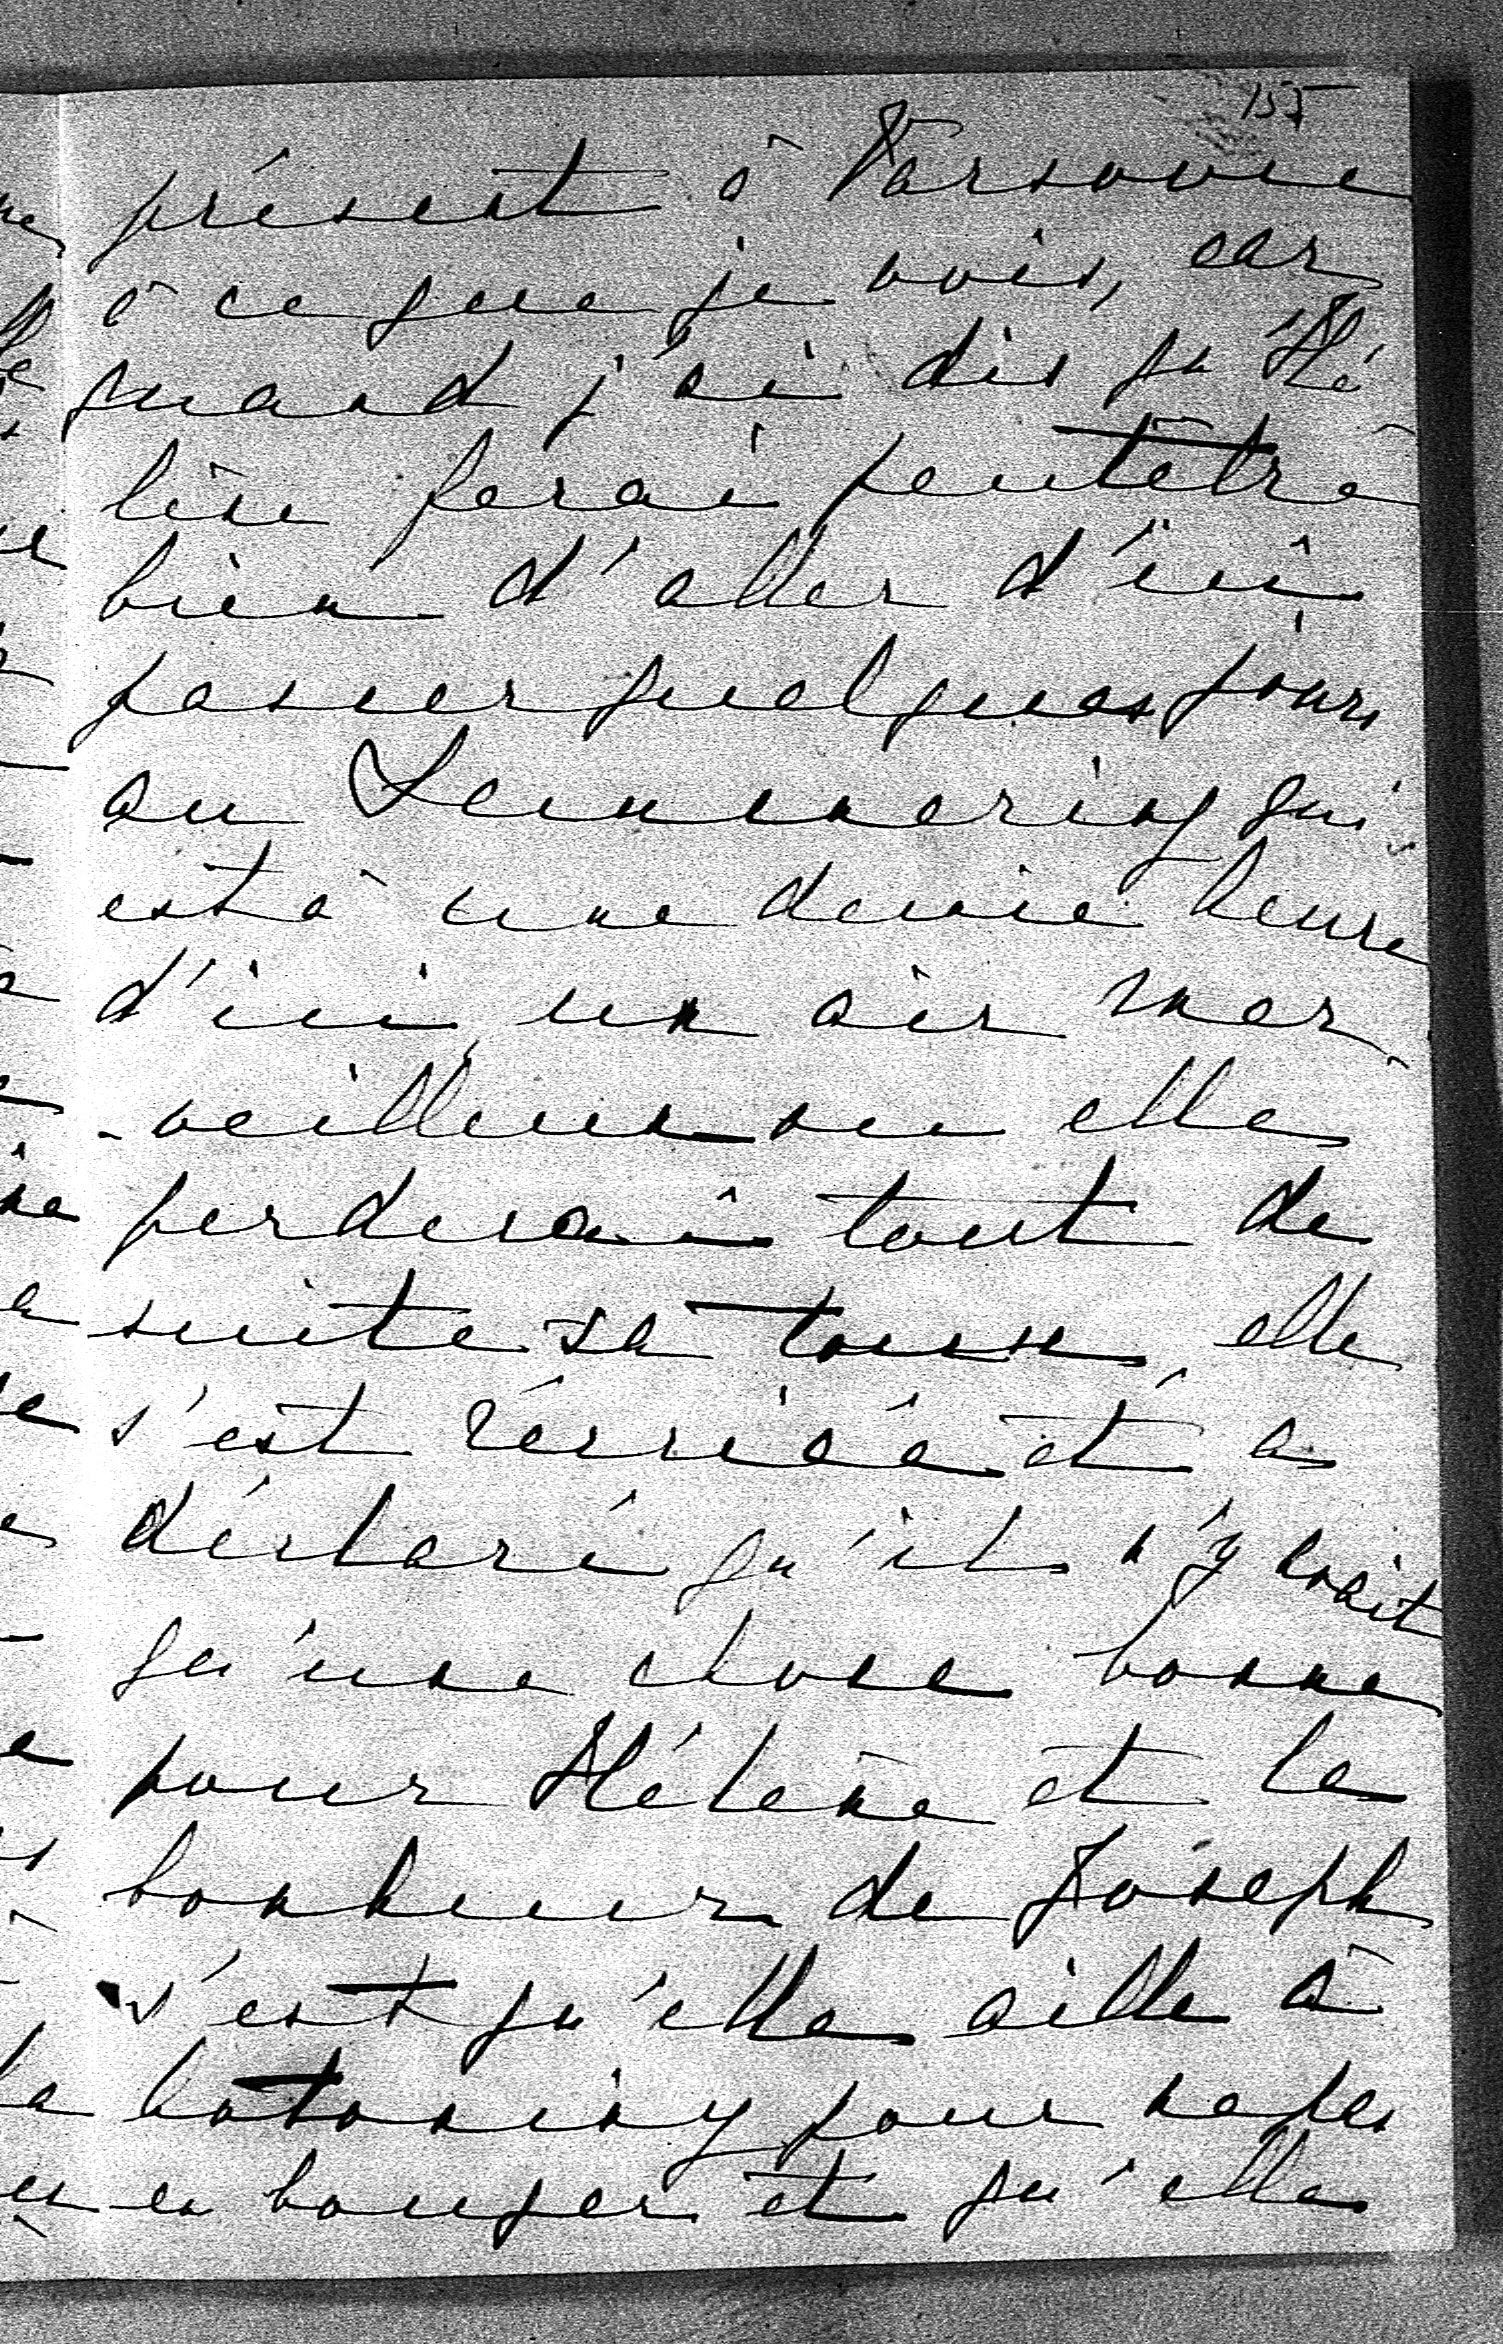 155
présent à Varsovie
à ce que je vois, car
quand j'ai dis qu'Hé
lène ferai peutêtre
bien d'aller d'ici
passer quelques jours
au Semmering qui
est à une demie heure
d'ici, un air mer-
-veilleux ou elle
perderai tout de
suite sa toux, elle
s'est récriée et a
déclaré qu'il n'y avait
qu'une chose bonne
pour Hélène et le
bonheur de Joseph
s'est qu'elle aille à
pour ne pas
en bouger et qu'elle